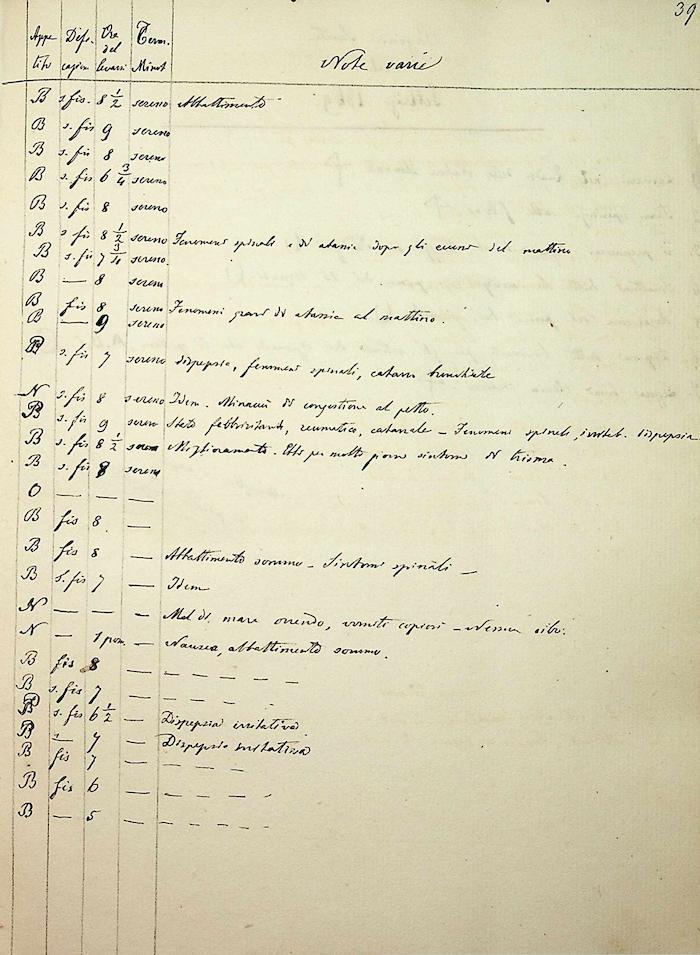 39
Appe Defe- Ora Term.
del
tito cazion levarsi Minut
Note varie
B s. fis. 8 1/2 sereno Abbattimento
B s. fis 9 sereno
B s. fis 8 sereno
B s. fis 6 3/4 sereno
B s. fis 8 sereno
B s. fis 8 1/2 sereno Fenomeni spinali e di atassia dopo gli del mattino
B s. fis 7 3/4 sereno
B — 8 sereno
B fis 8 sereno Fenomeni gravi di atassia al mattino.
B — 9 sereno
B s. fis 7 sereno dispepsia, fenomeni spinali, catarro bronchiale
N s. fis 8 sereno Idem. Minaccia di congestione al petto.
B s. fis 9 sereno Stato febbricitante, reumatico, catarrale – Fenomeni spinali, irritab. dispepsia
B s. fis 8 1/2 sereno Miglioramento. Ebbi per molti giorni sintomi di trisma.
B s. fis 8 sereno
O — — —
B fis 8 —
B fis 8 — Abbattimento sommo – Sintomi spinali —
B s. fis 7 — Idem
N — — — Mal di mare orrendo, vomiti copiosi – Nessun cibo.
N — 1 pom. — Nausea, abbattimento sommo.
B fis 8 — — — — — —
B s. fis 7 — — — — —
B s. fis 6 1/2 — Dispepsia irritativa
B — 7 — Dispepsia irritativa
B fis 7 — — — —
B fis 6 — — — — —
B — 5 — — — — — —